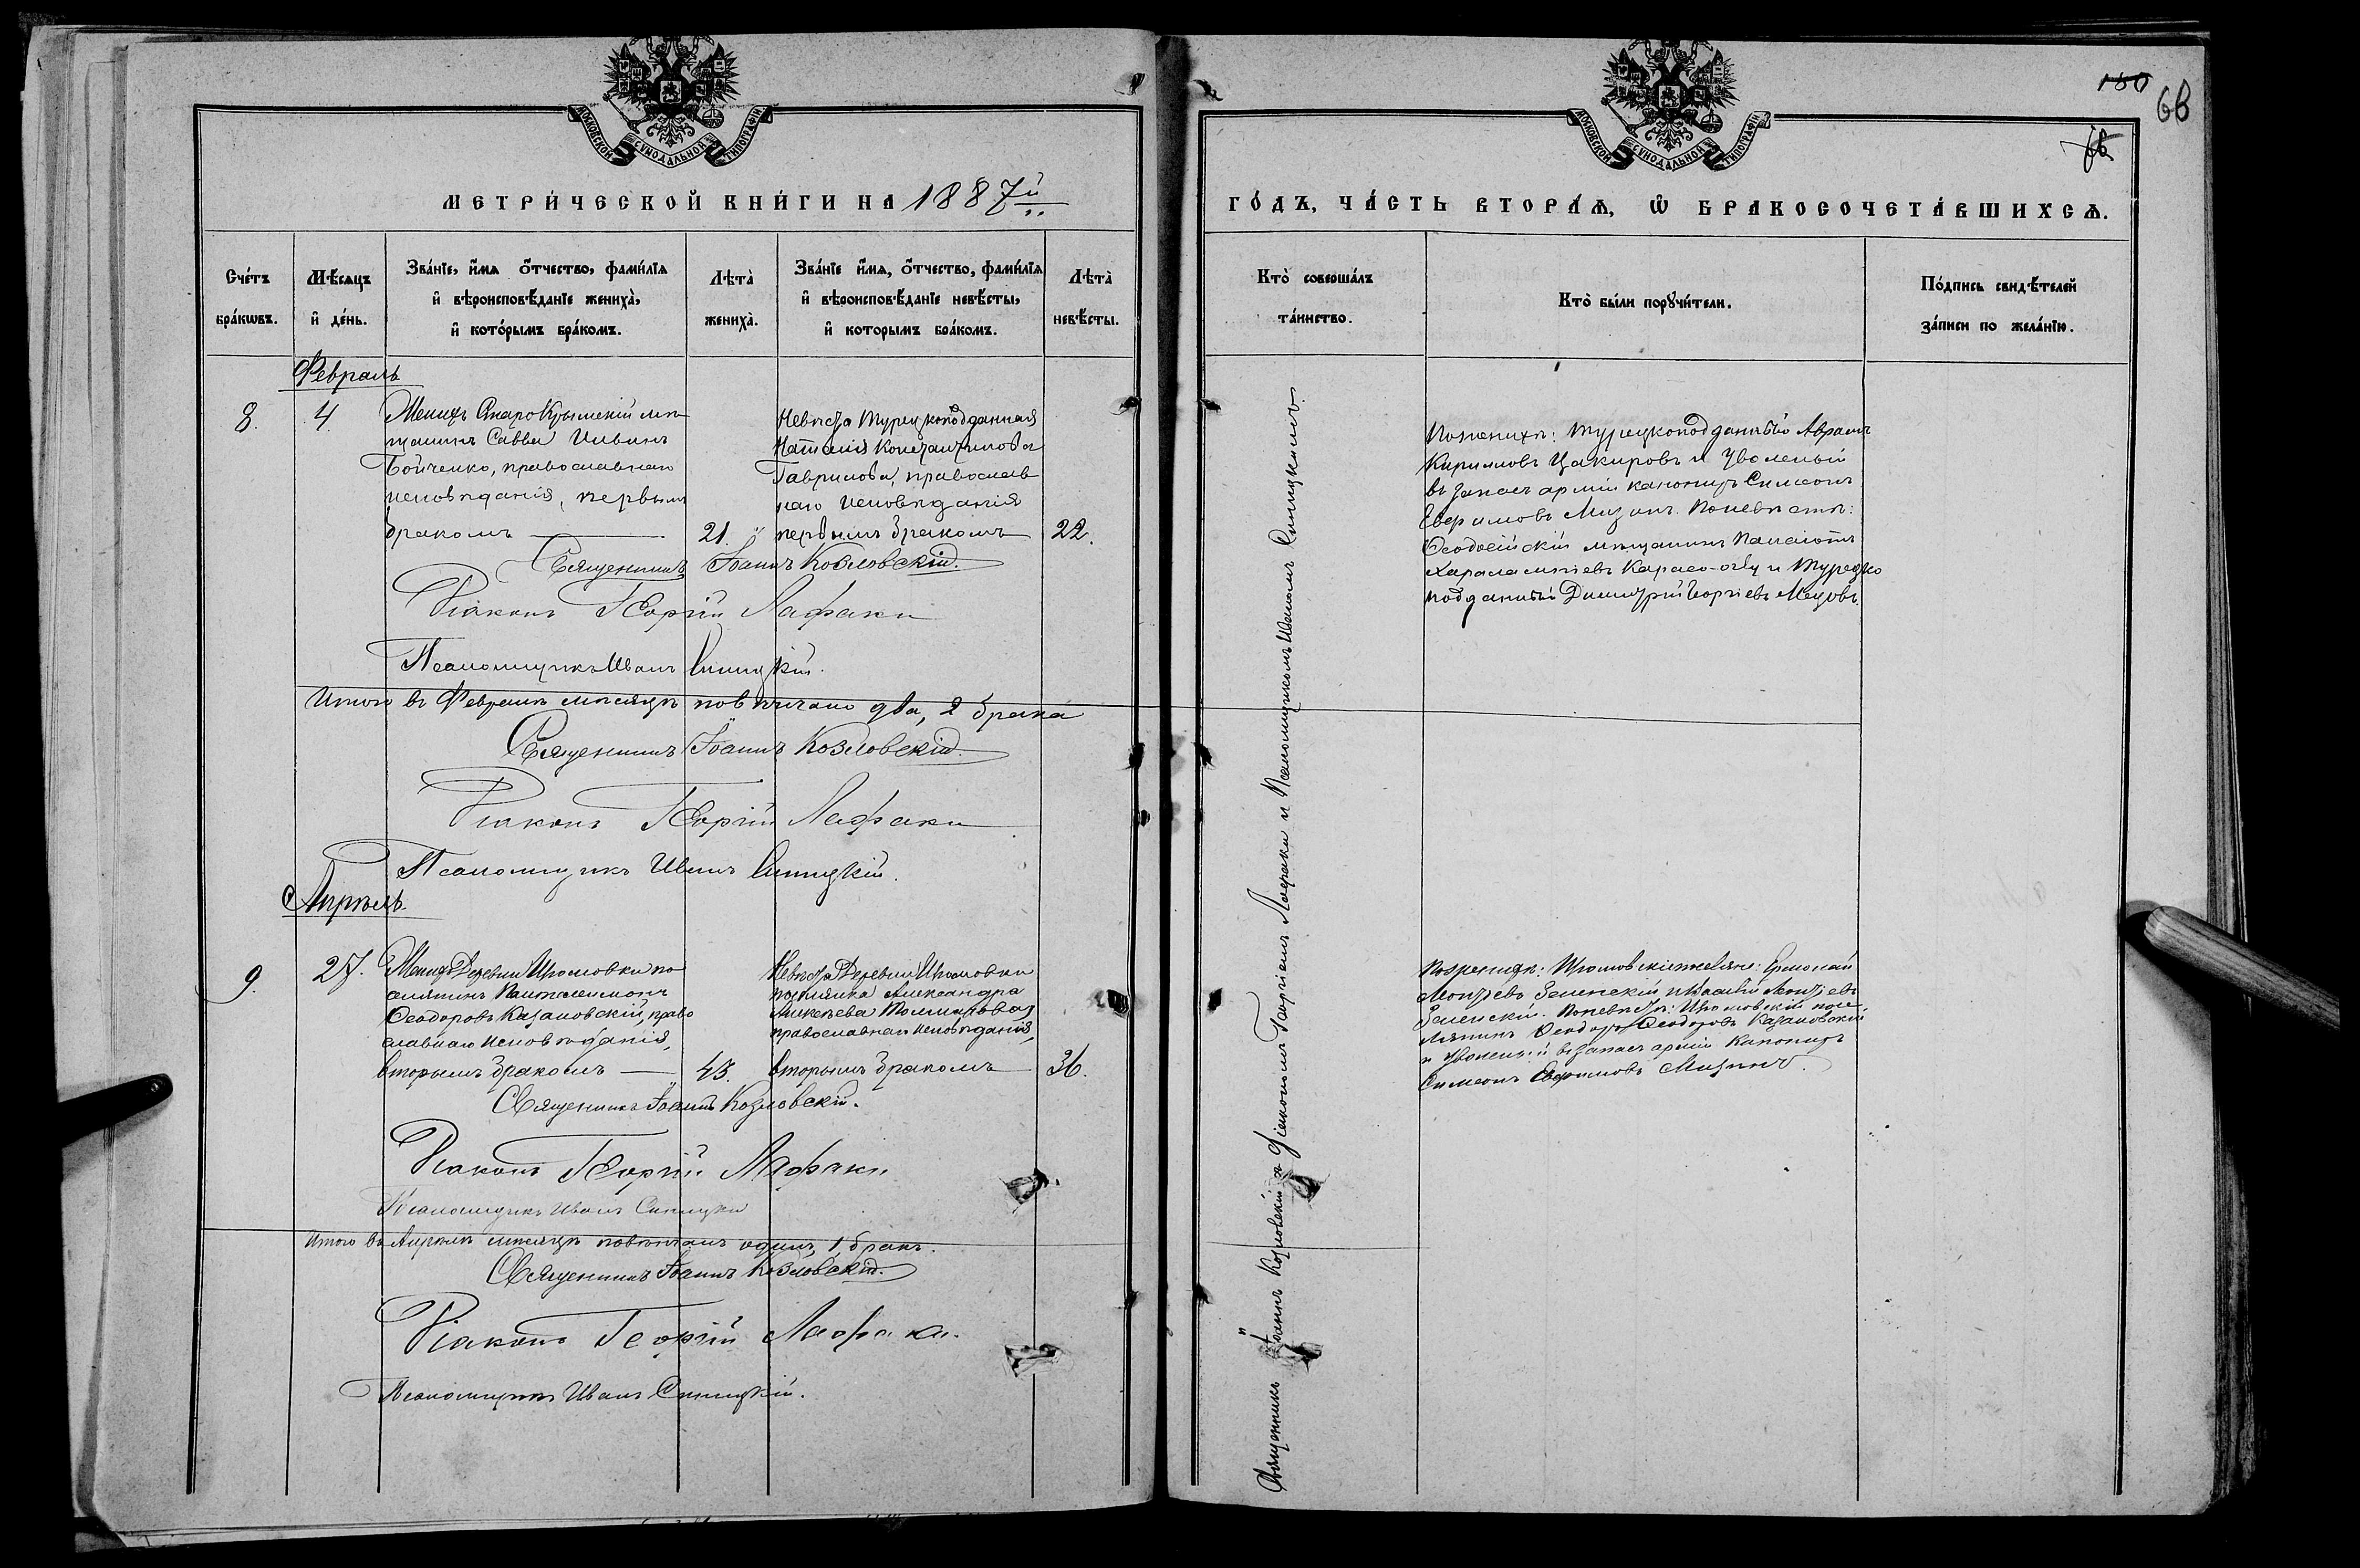 МОСКОВСКОЙ СУНОДАЛЬНОЙ ТИПОГРАФІИ
МЕТРИ́ЧЕСКОЙ КНИ́ГИ НА 1887й
Сче́тъ бра́кѡвъ.
Мѣ́сяцъ и҆ де́нь.
Зва́нїе, и҆́мѧ ѻ҆́тчество, фами́лїѧ
и҆ вѣроисповѣ́данїе жениха̀,
и҆ кото́рымъ бра́комъ.
Лѣта̀ жениха̀.
Зва́нїе и҆́мѧ, ѻ҆́тчество, фами́лїѧ
и҆ вѣроисповѣ́данїе невѣ́сты,
и҆ которымъ бра́комъ.
Лѣта̀ невѣ́сты.
Февраль
8.
4
Женихъ Старо Крымскій мѣ-
щанинъ Савва Ильинъ
Бойченко, православнаго
исповѣданія, первымъ
бракомъ
21.
Невѣста Турецкоподданная
Наталія Константинова
Гаврилова, православ
наго исповѣданія
первымъ бракомъ
22.
Священникъ Іоаннъ Козловскій.
Діаконъ Георгій Лафаки
Псаломщикъ Иванъ Синицкій.
Итого въ Февралѣ мѣсяцѣ повѣнчано два, 2 брака
Священникъ Іоаннъ Козловскій.
Діаконъ Георгій Лафаки
Псаломщикъ Иванъ Синицкій.
Апрѣль.
9.
27.
Женихъ Деревни Изюмовки по
селянинъ Пантелеимонъ
Ѳеодоровъ Казановскій, право
славнаго исповѣданія,
вторымъ бракомъ
43.
Невѣста Деревни Изюмовки
поселянка Александра
Алексѣева Толмачова,
православнаго исповѣданія,
вторымъ бракомъ
36.
Священникъ Іоаннъ Козловскій.
Діаконъ Георгій Лафаки
Псаломщикъ Иванъ Синицкій
Итого въ Апрѣлѣ мѣсяцѣ повѣнчанъ одинъ, 1, бракъ.
Священникъ Іоаннъ Козловскій.
Діаконъ Георгій Лафаки.
Псаломщикъ Иванъ Синицкій.
МОСКОВСКОЙ СУНОДАЛЬНОЙ ТИПОГРАФІИ
150
68
ГО́ДЪ, ЧА́СТЬ ВТОРА́Ѧ, Ѽ БРАКОСОЧЕТА́ВШИХСѦ.
Кто̀ соверша́лъ
та́инство.
Кто̀ бы́ли порꙋчи́тели.
По́дпись свидѣ́телей
за́писи по жела́нїю.
Священникъ Іоаннъ Козловскій съ Діакономъ Георгіемъ Лафаки и Псаломщикомъ Иваномъ Синицкимъ.
По женихѣ: Турецкоподданный Аврамъ
Кириловъ Цакировъ и уволеный
въ запасъ арміи канониръ Симеонъ
Евфимовъ Мизинъ. По невѣстѣ:
Ѳеодосійскій мѣщанинъ Панаіотъ
Харалампіевъ Карасо-оглу и Турецко
подданный Димитрій Георгіевъ Мецовъ.
По женихѣ: Изюмовскіе поселяне: Ермолай
Зеленскій и
Зеленскій. По невѣстѣ: Изюмовскій посе-
лянинъ Ѳеодоръ Ѳеодоровъ Казановскій
и уволеный въ запасъ арміи Канониръ
Симеонъ Евфимовъ Мизинъ.